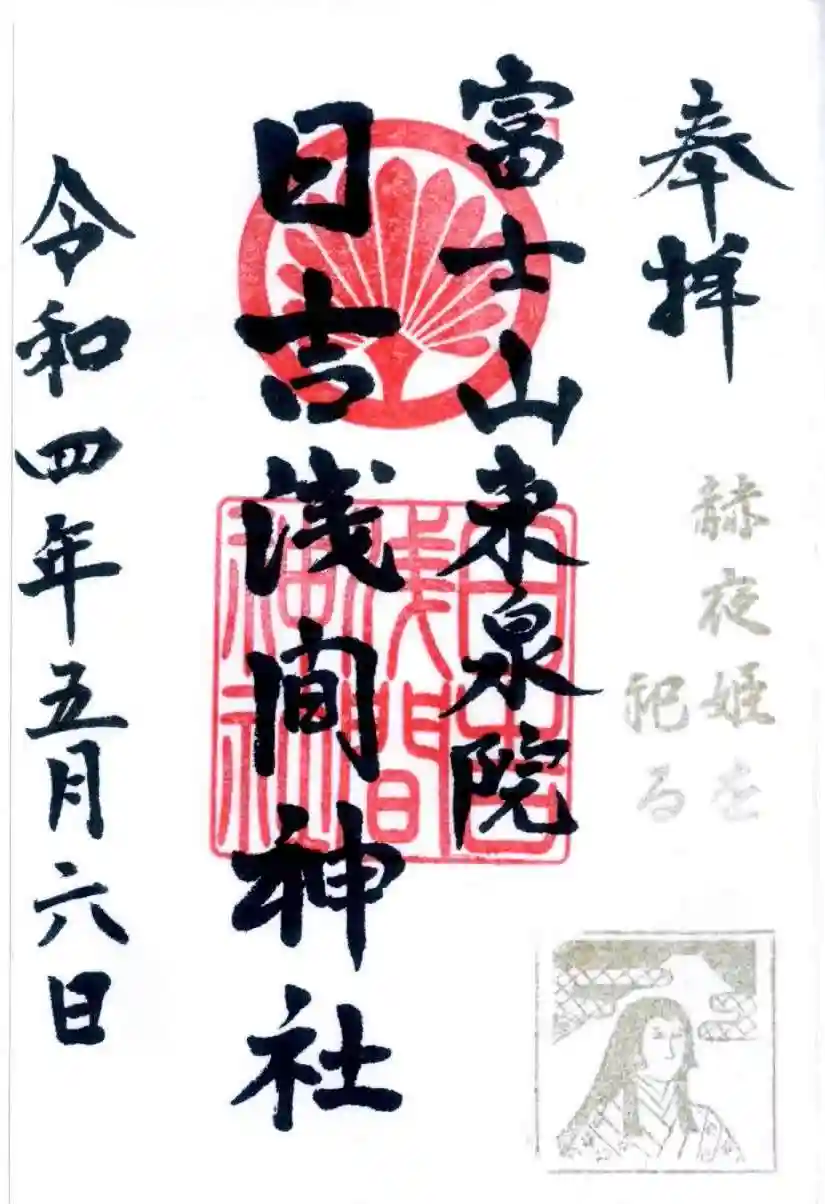 奉拝
赫夜姫を
祀る
富士山東泉院
日吉浅間神社
日吉
浅間
神社
令和四年五月六日